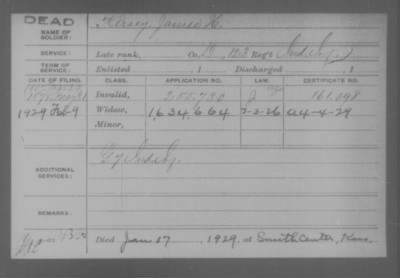 DEAD
NAME OF SOLDIER: Kersey, James H.
SERVICE: Late rank, Co. D, 123 Reg't Ind. Inf.
TERM OF SERVICE: Enlisted , 1 Discharged , 1
DATE OF FILING. CLASS. APPLICATION NO. LAW. CERTIFICATE NO.
Invalid, 255,790 161,098
1929 Feb 9 Widow, 1,634,664 2-2-26 a4-4-29
Minor,
ADDITIONAL SERVICES: Ind. Inf.
REMARKS:
Died Jan 17 , 1929, at Smith Center, Kans.